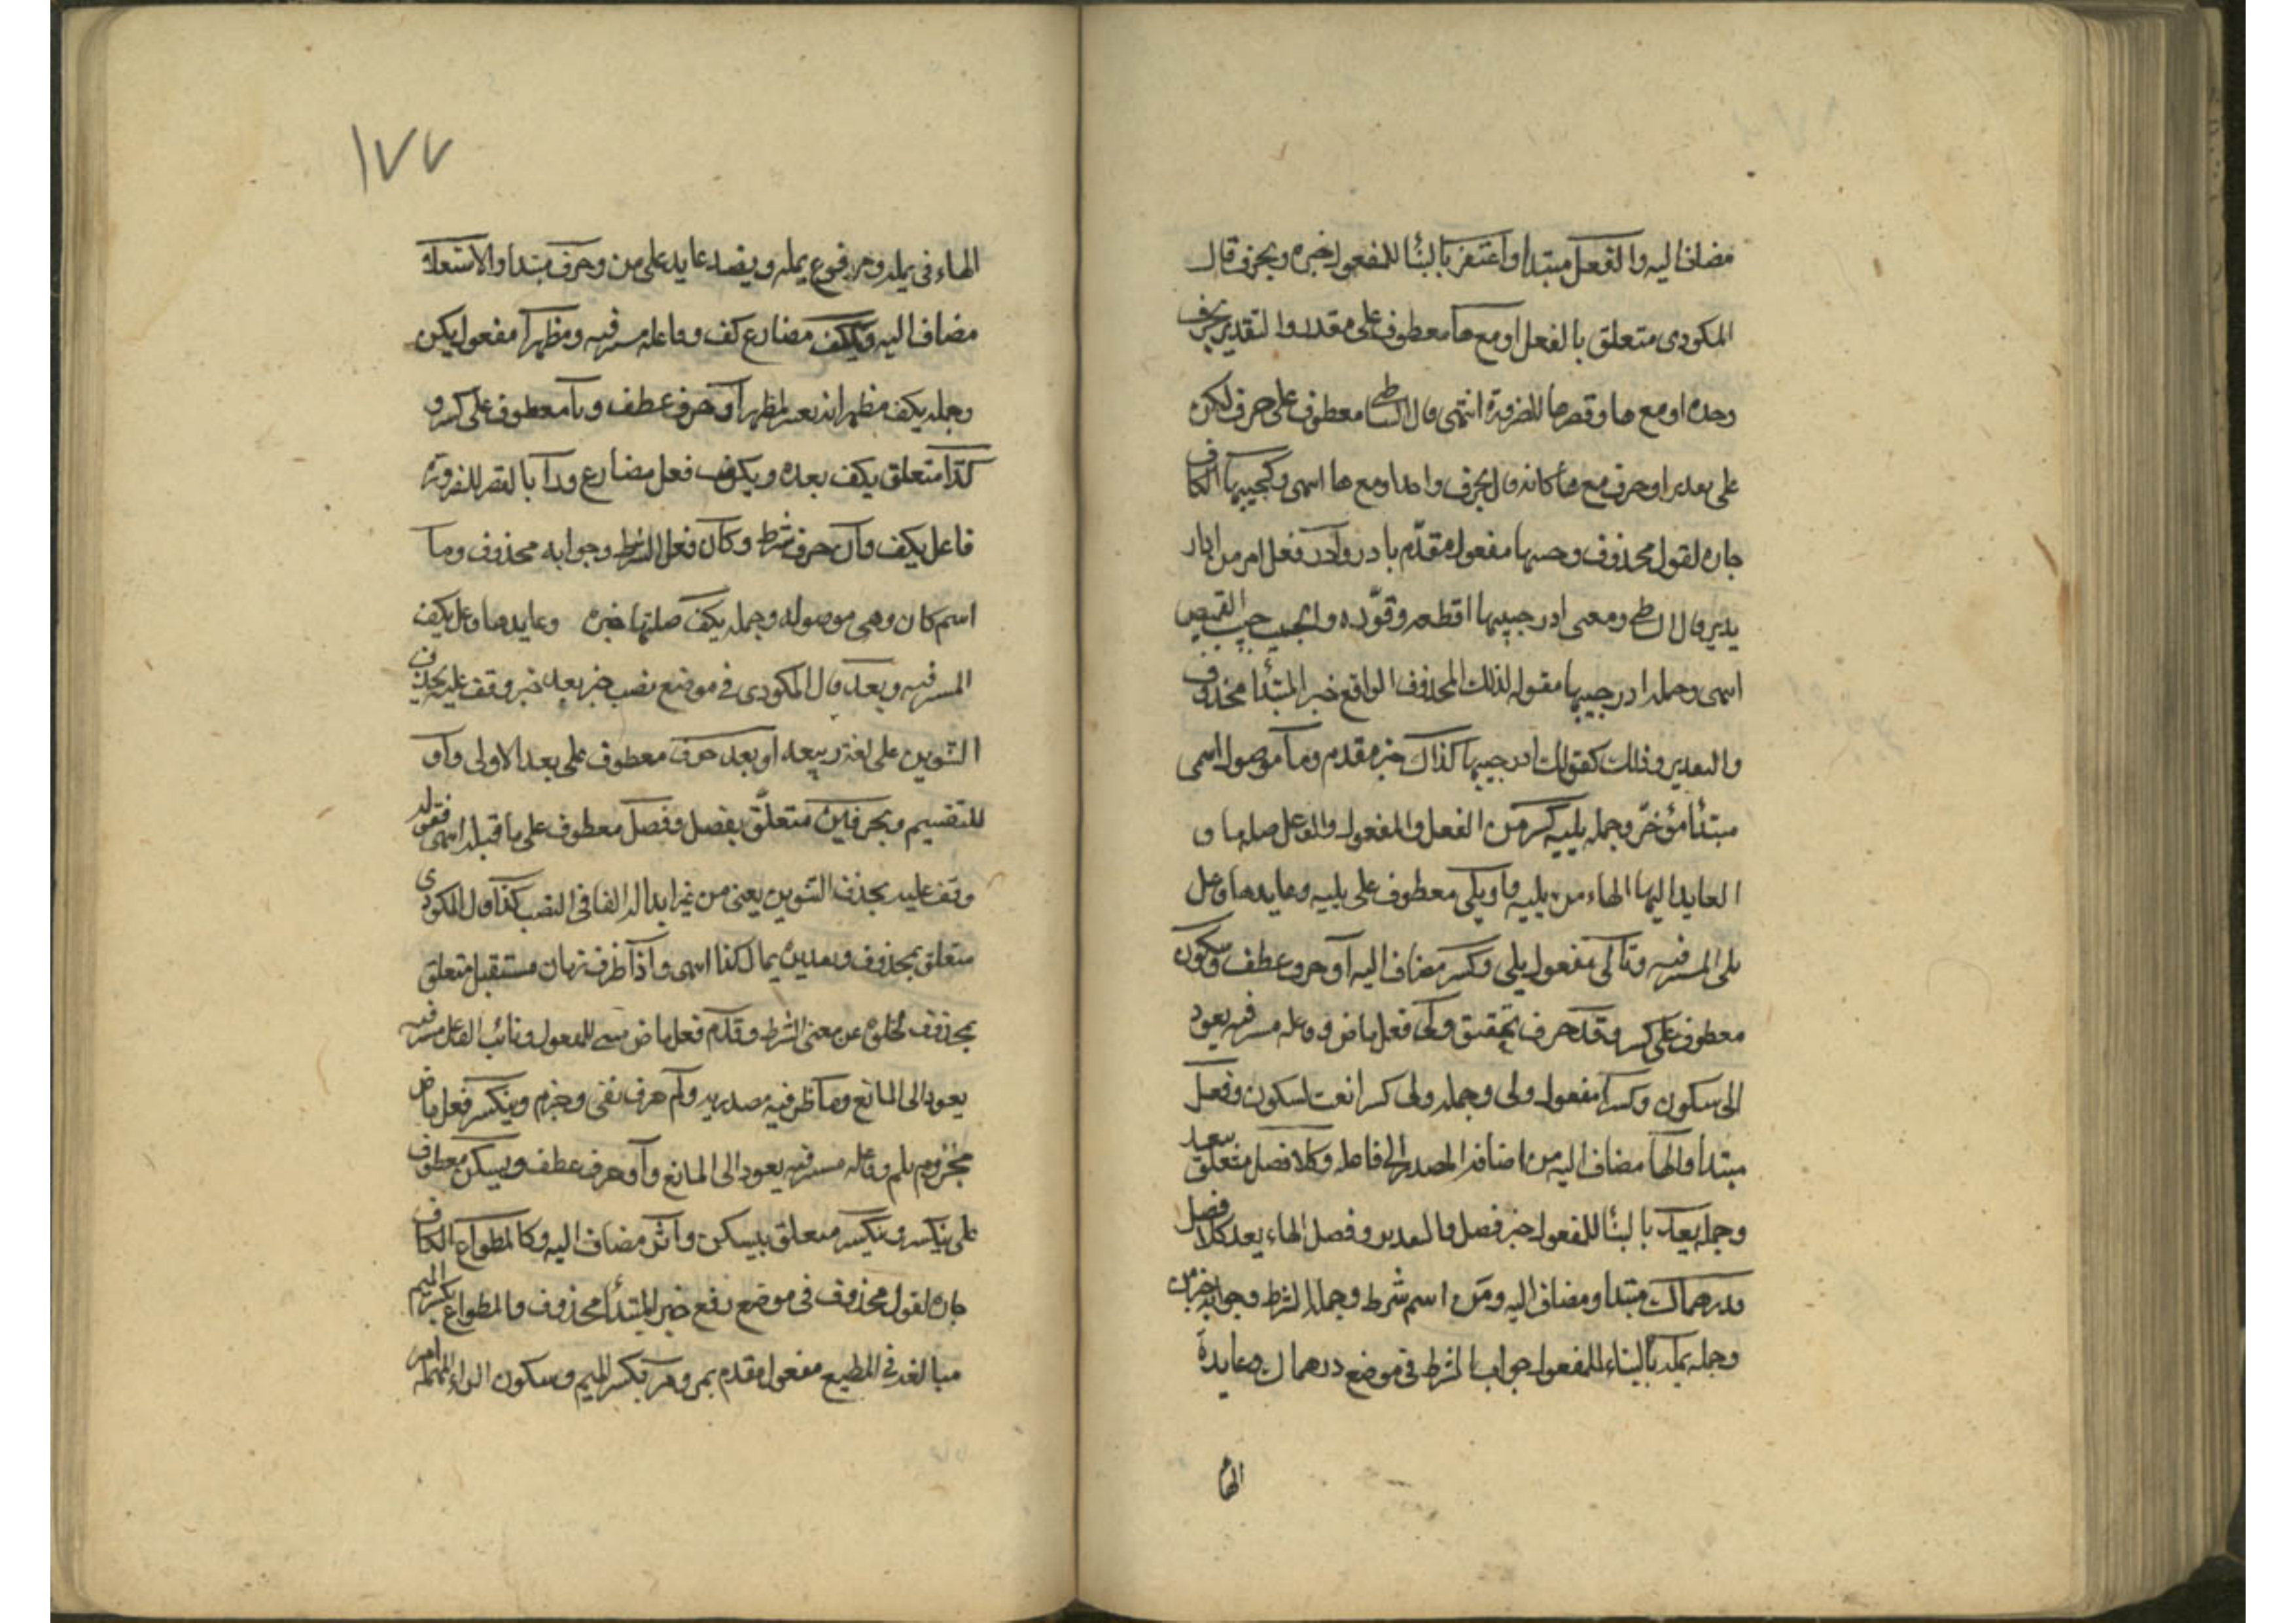 مضاف اليه والفعل مبتدا واغتفر بالبنأ للمفعول خبره وبحرف قال
المكودى متعلق بالفعل او مع ها معطوف على مقدر والتقدير بحرف
وحده او مع ها وقصرها للضرورة انتهى قال الشاطبى معطوف على حرف لكن
على تقدير او حرف مع ها كانه قال بحرف واحد او مع ها انتهى وكجيبها الكاف
جاره لقول محذوف وجيبها مفعول مقدم بادر وادر فعل امر من ادار
يدير قال الشاطبى ومعنى ادر جيبها اقطعه وقوّره والجيب جيب القميص
انتهى وجملة ادر جيبها مقوله لذلك المحذوف الواقع خبرا لمبتدأ محذوف
والتقدير وذلك كقولك ادر جيبها كذاك خبر مقدم وما موصول اسمى
مبتدأ مؤخر وجملة يليه كسر من الفعل والمفعول والفاعل صلة ما و
العايد اليها الهاء من يليه واو يلى معطوف على يليه وعايدها فاعل
يلى المستتر فيه وتالى مفعول يلى وكسر مضاف اليه او حرف عطف وسكون
معطوف على كسر وقد حرف تحقيق ولى فعل ماض وفاعله مستتر فيه يعود
الى سكون وكسرا مفعول ولى وجملة ولى كسرا نعت لسكون وفصل
مبتدا والها مضاف اليه من اضافة المصدر الى فاعله وكلا فصل متعلق بيعد
وجملة يعد بالبنأ للمفعول خبر فصل والتقدير وفصل الهاء يعد كلا فصل
ودرهماك مبتدا ومضاف اليه ومن اسم شرط وجملة الشرط وجوابه خبر من
وجملة يمله بالبناء للمفعول جواب الشرط فى موضع درهماك وعايدة
الها
١٧٧
الهاء فى يمله ومرفوع يمله ويصد عايد على من وحرف مبتدا والاستعلا
مضاف اليه ويكف مضارع كف وفاعله مستتر فيه ومظهرا مفعول يكف
وجملة يكف مظهرا خبر لمظهرا او حرف عطف ويا معطوف على كسر و
كذا متعلق بيكف بعده ويكف فعل مضارع ورا بالقصر للضرورة
فاعل يكف وان حرف شرط وكان فعل الشرط وجوابه محذوف وما
اسم كان وهى موصوله وجملة يكف صلتها خبره وعايدها فاعل يكف
المستتر فيه وبعد قال المكودى فى موضع نصب خبر بعد خبر وقف عليه بحذف
التنوين على لغة ربيعه او بعد حرف معطوف على بعد الاولى واو
للتقسيم وبحرفين متعلق بفصل وفصل معطوف على ما قبله انتهى فقوله
وقف عليه بحذف التنوين يعنى من غير ابداله الفا فى النصب كذا قال المكودى
متعلق بمحذوف وتقديره يمال كذا انتهى واذا ظرف زمان مستقبل متعلق
بمحذوف لخلوه عن معنى الشرط وقدم فعل ماض مبنى للمفعول ونائب الفاعل مستتر فيه
يعود الى المانع وما ظرفيه مصدريه ولم حرف نفى وجزم وينكسر فعل ماض
مجزوم بلم وفاعله مستتر فيه يعود الى المانع واو حرف عطف ويسكن معطوف
على ينكسر وينكسر متعلق بيسكن واثر مضاف اليه وكالمطواع الكاف
جاره لقول محذوف فى موضع رفع خبر المبتدأ محذوف والمطواع بكسر الميم
مبالغة فى المطيع مفعول مقدم بمر ومر بكسر الميم وسكون الراء المهملة امر